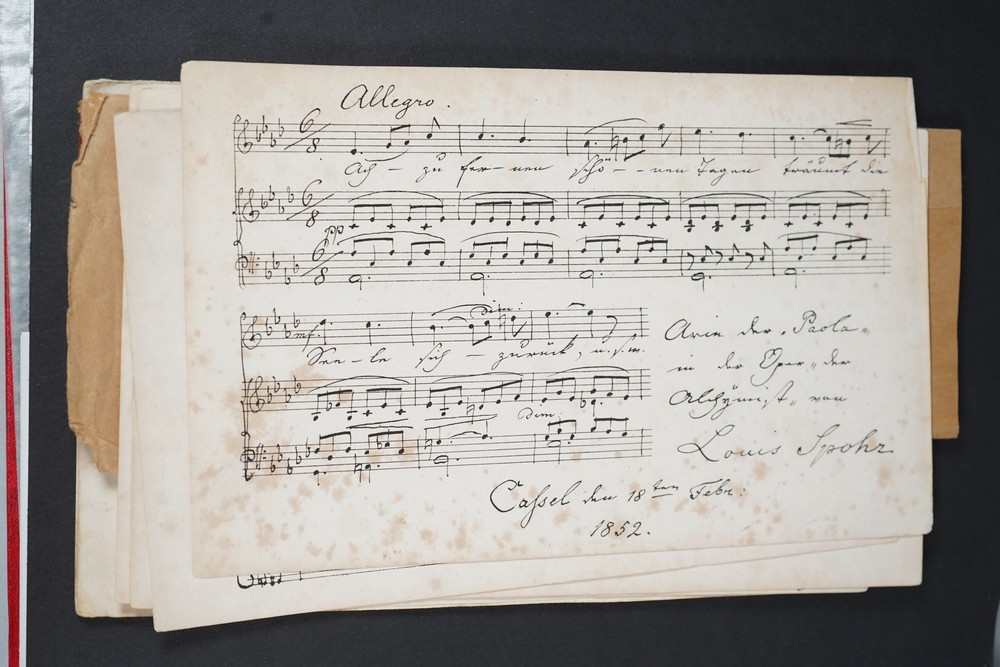 Allegro.
6/8
Ach – zu fer – nen schö – – nen Tagen träumt die
6/8
pp
6/8
mf dim:
See – le sich – zurück, u.s.w.
dim.
Arie der „Paola“
in der Oper „der
Alchymist“ von
Louis Spohr
Cassel den 18ten Febr:
1852.